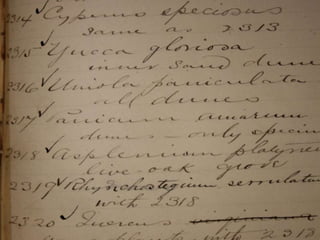 2314 Cyperus speciosus
same as 2313
2315 Yucca gloriosa
inner sand dune
2316 Uniola paniculata
all dunes
2317 Panicum amarum
dunes - only specim
2318 Asplenium platyneu
live-oak grove
2319 Rhynchostegium serrulatu
with 2318
2320 Quercus virginiana
with 2318